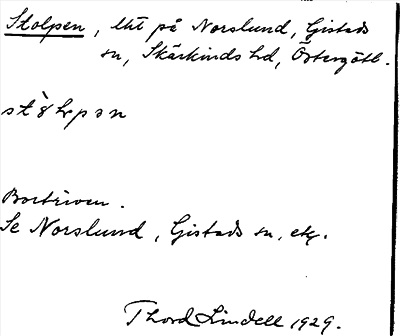 Stolpen, lht på Norslund, Gistads
sn, Skärkinds hd, Östergötl.
Bortriven.
Se Norslund, Gistads sn, etg.
Thord Lindell 1929.